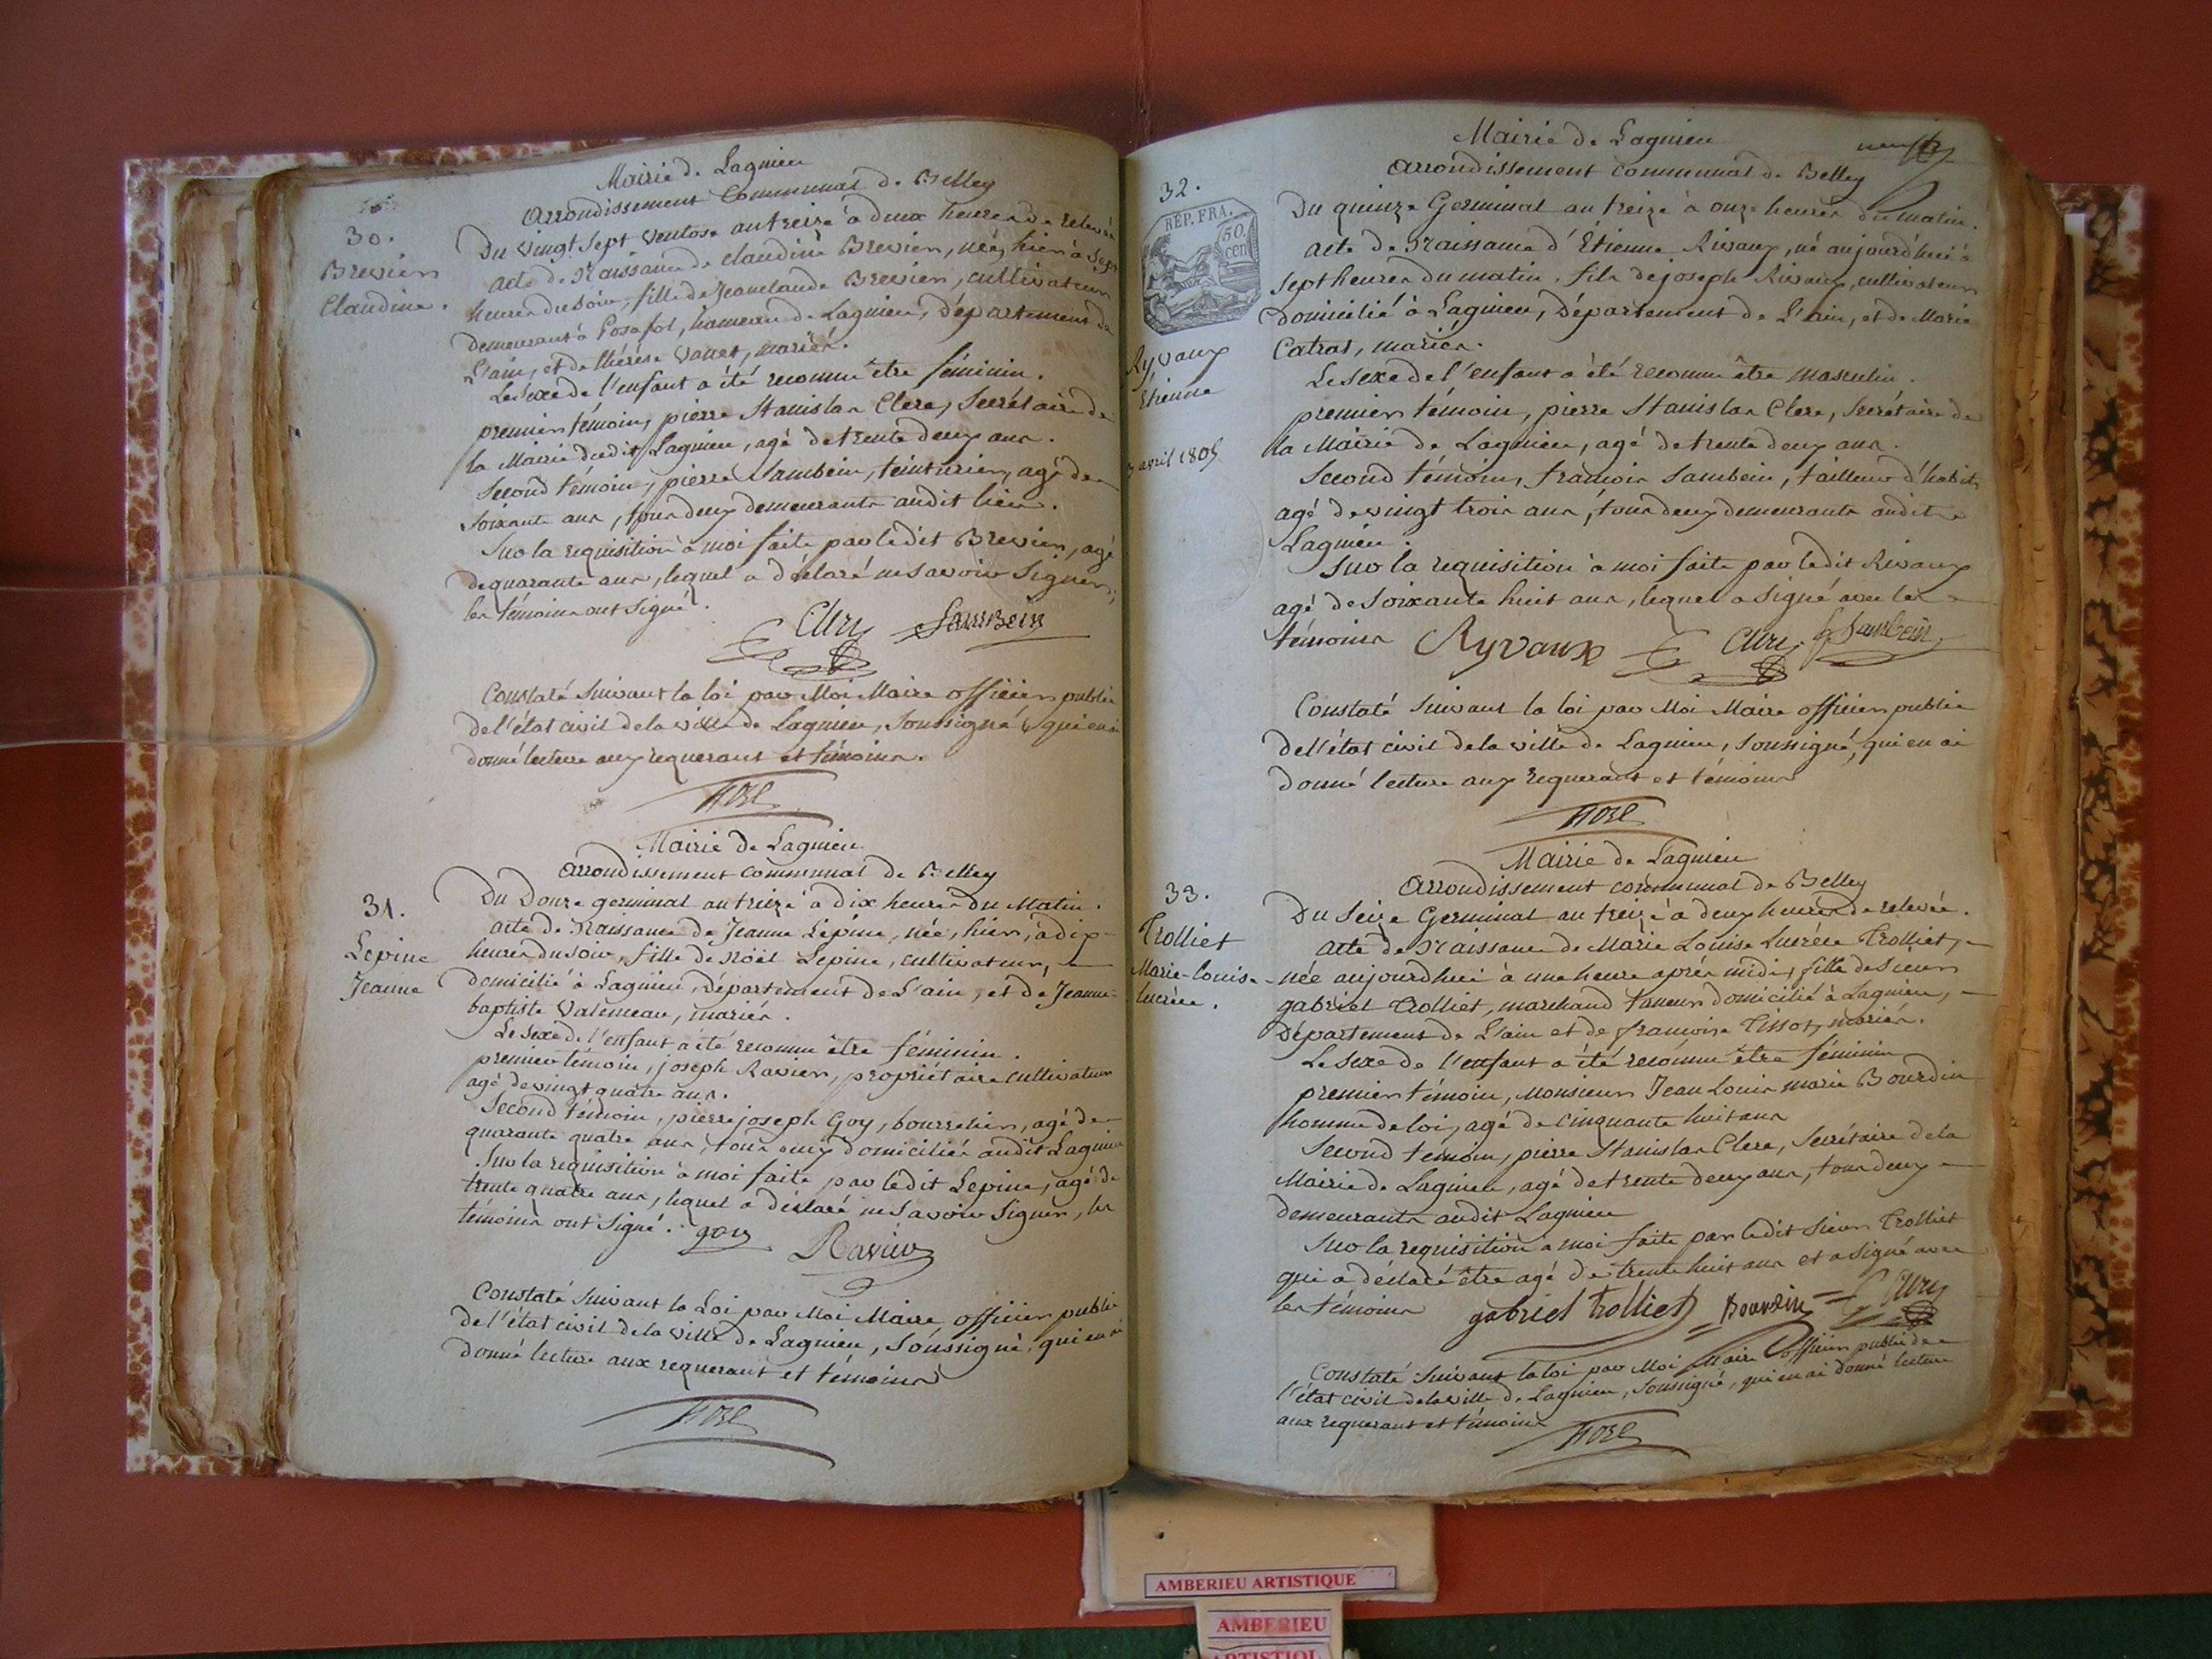 Mairie de Lagnieu
Arrondissement Communal de Belley
30.
Brevien
Claudine.
Du vingt Sept Ventose an treize à deux heures de relevée
acte de Naissance de Claudine Brevien, née, hier à Sept
heures du Soir, fille de Jean Claude Brevien, cultivateur
demeurant à Posafol, hameau de Lagnieu, Département de
L'ain, et de thérèse Vallet, mariés.
Le Sexe de l'enfant a été reconnu être féminin.
premier témoin, pierre Stanislas Clerc, Secrétaire de
la Mairie dudit Lagnieu, agé de trente deux ans.
Second témoin, pierre Sambein, teinturier, agé de
Soixante ans, tous deux demeurants audit lieu.
Sur la requisition à moi faite par ledit Brevien, agé
de quarante ans, lequel a déclaré ne Savoir Signer,
les témoins ont Signé.
Clerc Sambein
Constaté Suivant la loi par Moi Maire officier public
de l'état civil de la ville de Lagnieu, Soussigné, qui en ai
donné lecture aux requerant et témoins.
Mairie de Lagnieu
Arrondissement communal de Belley
31.
Lepine
Jeanne
Du Douze germinal an treize à dix heures du Matin.
acte de Naissance de Jeanne Lépine, née, hier, à dix
heures du Soir, fille de Noël Lepine, cultivateur,
domicilié à Lagnieu, Département de L'ain, et de Jeanne
baptiste Valemeau, mariés.
Le Sexe de l'enfant a été reconnu être féminin.
premier témoin, joseph Ravier, propriétaire cultivateur
agé de vingt quatre ans.
Second témoin, pierre joseph Goy, bourrelier, agé de
quarante quatre ans, tous deux domiciliés audit Lagnieu
Sur la requisition à moi faite par ledit Lepine, agé de
trente quatre ans, lequel a déclaré ne Savoir Signer, les
témoins ont Signé. goy Ravier
Constaté Suivant la Loi par Moi Maire officier public
de l'état civil de la ville de Lagnieu, Soussigné, qui en ai
donné lecture aux requerant et témoins
Mairie de Lagnieu
Arrondissement communal de Belley
32.
RÉP. FRA.
50.
cen
Ryvaux
Etienne
avril 1805
Du quinze Germinal an treize à onze heures du matin.
acte de Naissance d'Etienne Rivaux, né aujourd'hui à
Sept heures du matin, fils de joseph Rivaux, cultivateur
domicilié à Lagnieu, Département de L'ain, et de Marie
Catras, mariés.
Le Sexe de l'enfant a été reconnu être masculin.
premier témoin, pierre Stanislas Clerc, Secrétaire de
la Mairie de Lagnieu, agé de trente deux ans.
Second témoin, francois Sambein, tailleur d'habits
agé de vingt trois ans, tous deux demeurants audit
Lagnieu.
Sur la requisition à moi faite par ledit Rivaux
agé de Soixante huit ans, lequel a Signé avec les
témoins Ryvaux Clerc f Sambein
Constaté Suivant la loi par Moi Maire officier public
de l'état civil de la ville de Lagnieu, Soussigné, qui en ai
donné lecture aux requerant et témoins
Mairie de Lagnieu
Arrondissement communal de Belley
33.
Trolliet
Marie-Louise
lucrèce.
Du Seize Germinal an treize à deux heures de relevée.
acte de Naissance de Marie Louise Lucrèce Trolliet,
née aujourdhui à une heure après midi, fille de Sieur
gabriel Trolliet, marchand tanneur domicilié à Lagnieu,
Département de L'ain et de francoise Tissot, mariés.
Le Sexe de l'enfant a été reconnu être féminin
premier témoin, Monsieur Jean Louis marie Bourdin
homme de loi, agé de Cinquante huit ans
Second témoin, pierre Stanislas Clerc, Secrétaire de la
Mairie de Lagnieu, agé de trente deux ans, tous deux
demeurants audit Lagnieu
Sur la requisition à moi faite par ledit Sieur Trolliet
qui a déclaré être agé de trente huit ans et a Signé avec
les témoins gabriel trolliet Bourdin Clerc
Constaté Suivant la loi par Moi Maire officier public de
l'état civil de la ville de Lagnieu, Soussigné, qui en ai donné lecture
aux requerant et témoins
AMBERIEU ARTISTIQUE
AMBERIEU